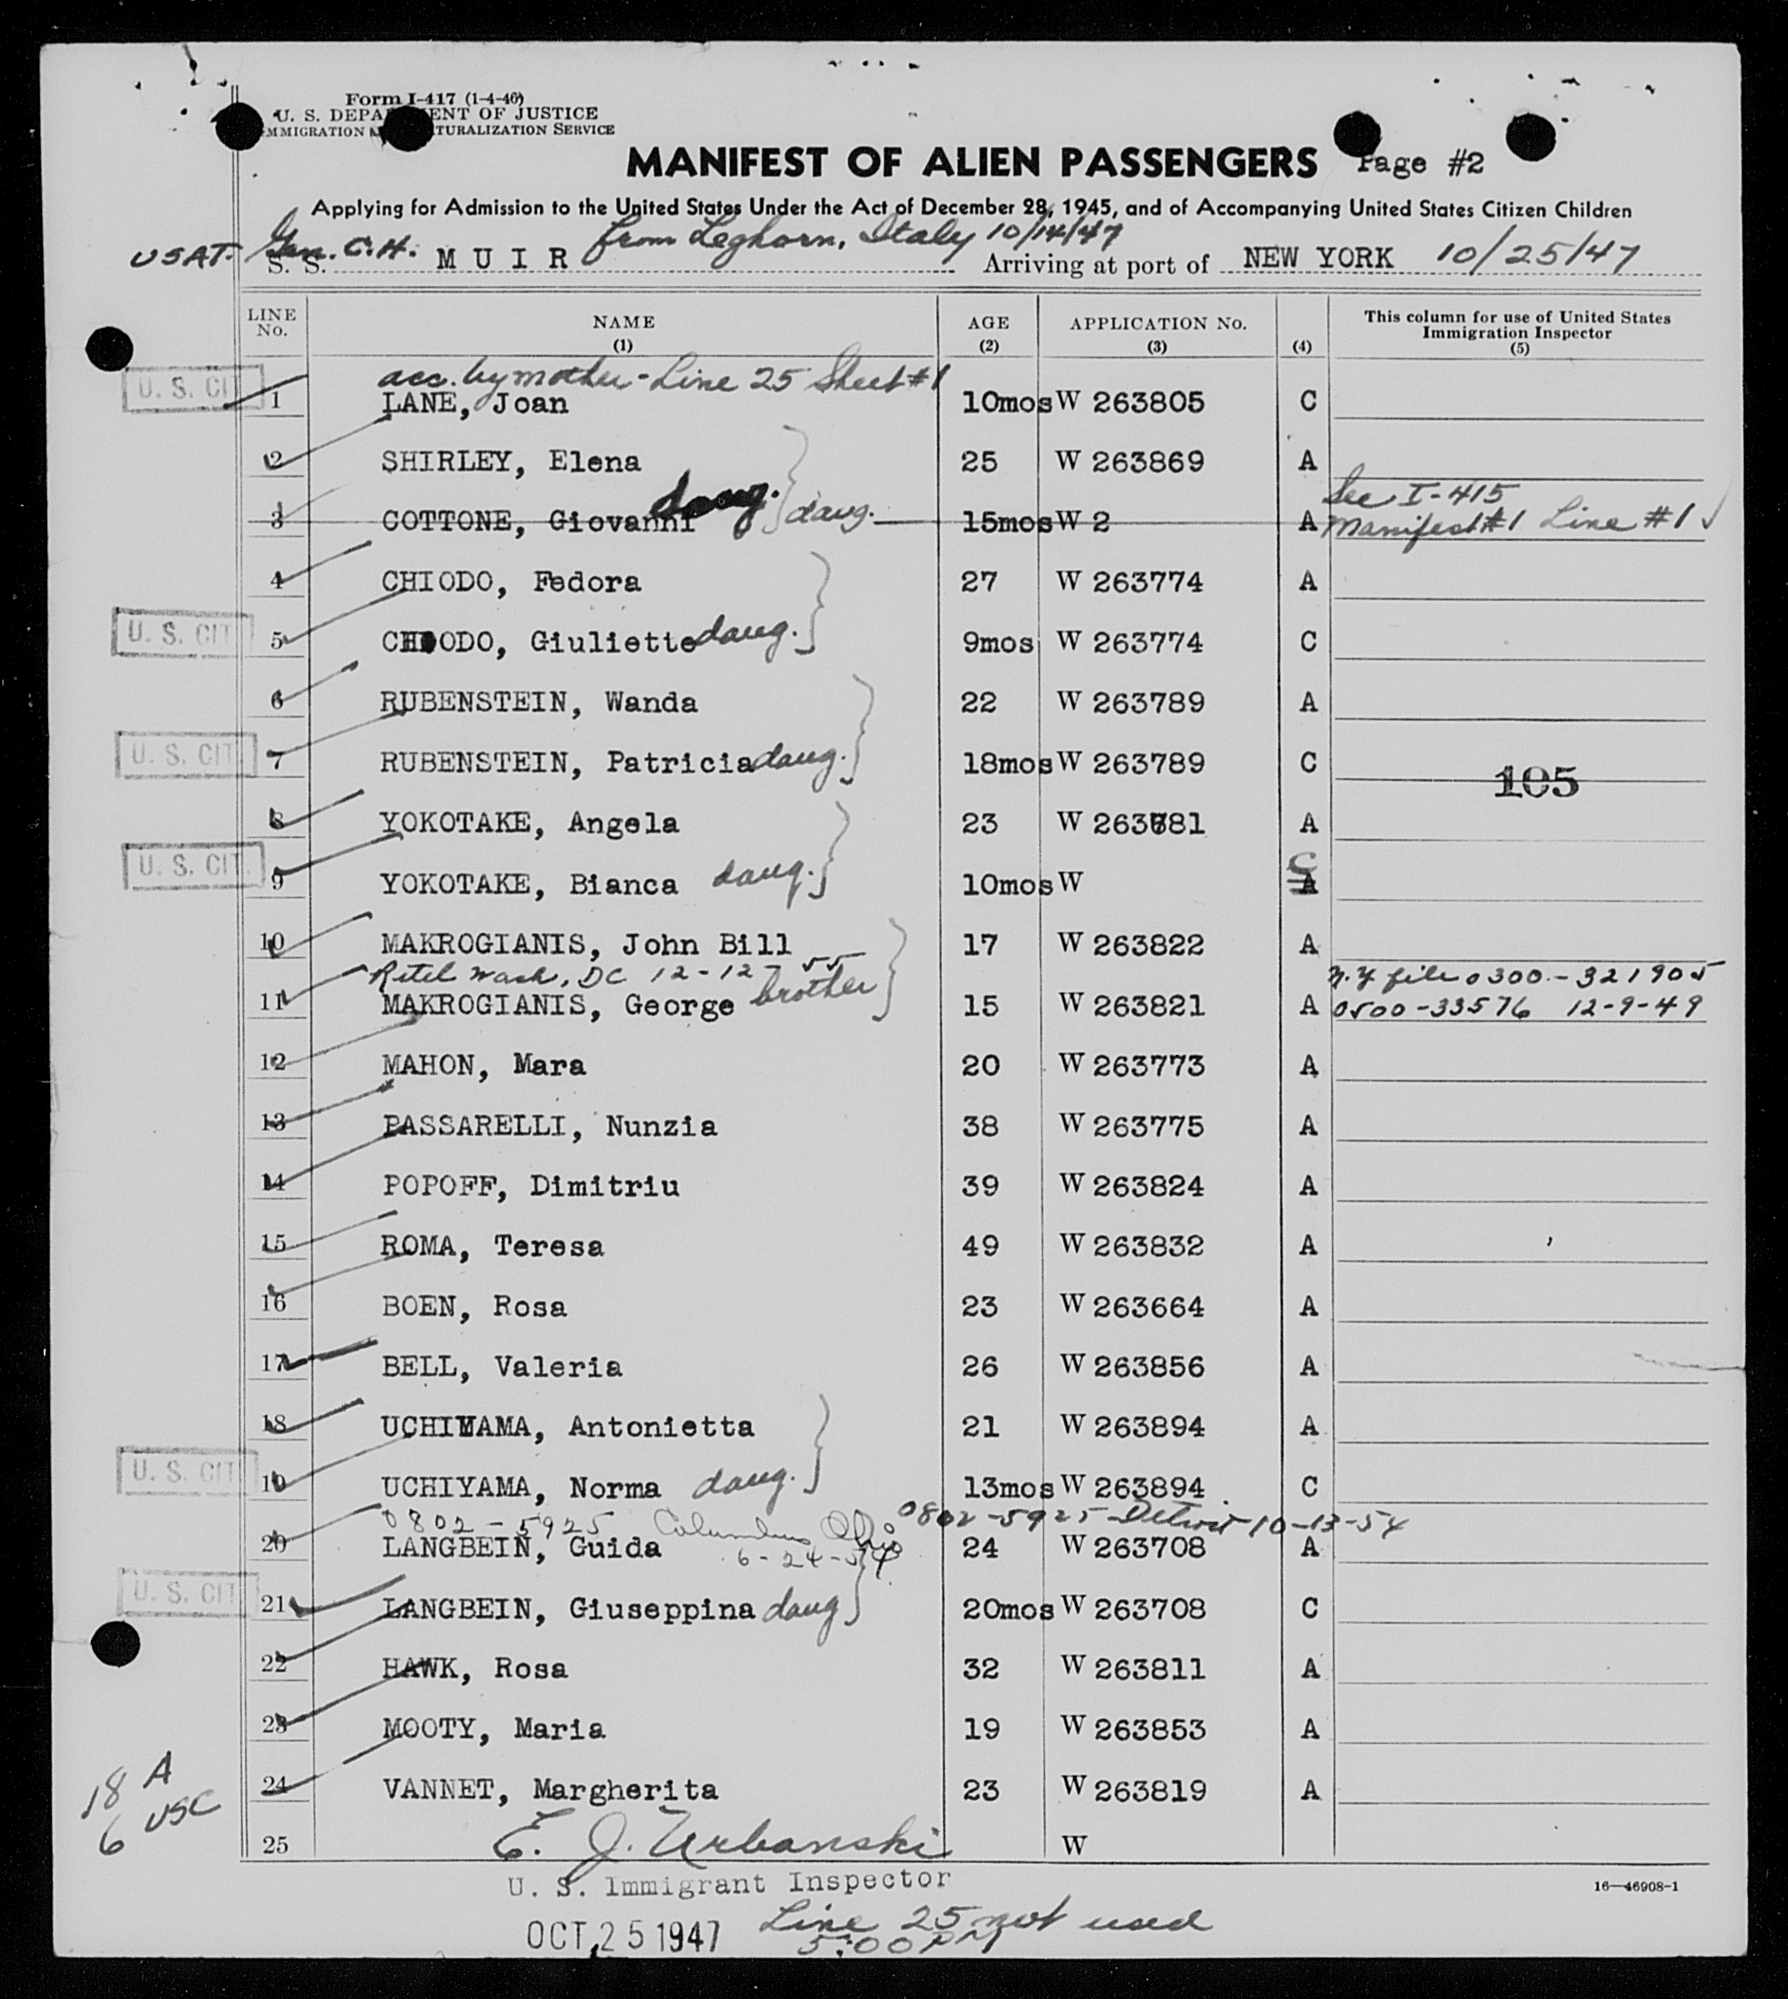 Form I-417 (1-4-46)
U. S. DEPA ENT OF JUSTICE
MMIGRATION TURALIZATION SERVICE
MANIFEST OF ALIEN PASSENGERS Page #2
Applying for Admission to the United States Under the Act of December 28, 1945, and of Accompanying United States Citizen Children
USAT. Gen. C.H. S. S. MUIR from Leghorn, Italy 10/14/47 Arriving at port of NEW YORK 10/25/47
LINE No. NAME (1) AGE (2) APPLICATION No. (3) (4) This column for use of United States Immigration Inspector (5)
acc. by mother - Line 25 Sheet #1
U. S. CIT 1 LANE, Joan 10mos W 263805 C
2 SHIRLEY, Elena 25 W 263869 A
See I-415
3 COTTONE, Giovanni daug. daug. 15mos W 2 A Manifest #1 Line #1
4 CHIODO, Fedora 27 W 263774 A
U. S. CIT 5 CHIODO, Giuliette daug. 9mos W 263774 C
6 RUBENSTEIN, Wanda 22 W 263789 A
U. S. CIT. 7 RUBENSTEIN, Patricia daug. 18mos W 263789 C
105
8 YOKOTAKE, Angela 23 W 263781 A
U. S. CIT. 9 YOKOTAKE, Bianca daug. 10mos W A C
10 MAKROGIANIS, John Bill 17 W 263822 A
Retel Wash, DC 12-12-55 N.Y file 0300-321905
11 MAKROGIANIS, George brother 15 W 263821 A 0500-33576 12-9-49
12 MAHON, Mara 20 W 263773 A
13 PASSARELLI, Nunzia 38 W 263775 A
14 POPOFF, Dimitriu 39 W 263824 A
15 ROMA, Teresa 49 W 263832 A
16 BOEN, Rosa 23 W 263664 A
17 BELL, Valeria 26 W 263856 A
18 UCHIYAMA, Antonietta 21 W 263894 A
U. S. CIT 19 UCHIYAMA, Norma daug. 13mos W 263894 C
0802-5925 Columbus Ohio 6-24-54 0802-5925 Detroit 10-13-54
20 LANGBEIN, Guida 24 W 263708 A
U. S. CIT 21 LANGBEIN, Giuseppina daug 20mos W 263708 C
22 HAWK, Rosa 32 W 263811 A
23 MOOTY, Maria 19 W 263853 A
18 A
24 VANNET, Margherita 23 W 263819 A
6 USC
25 E. J. Urbanski W
U. S. Immigrant Inspector 16—46908-1
OCT 25 1947 Line 25 not used
5:00 PM